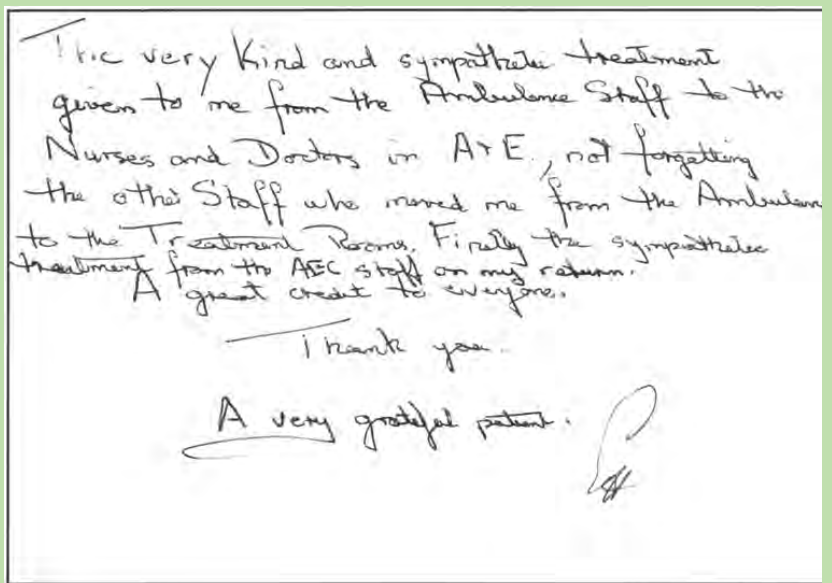 The very Kind and sympathetic treatment
given to me from the Ambulance Staff to the
Nurses and Doctors in A+E, not forgetting
the other Staff who moved me from the Ambulan
to the Treatment Rooms. Finally the sympathetic
treatment from the AEC staff on my return.
A great credit to everyone.
Thank you.
A very grateful patient.